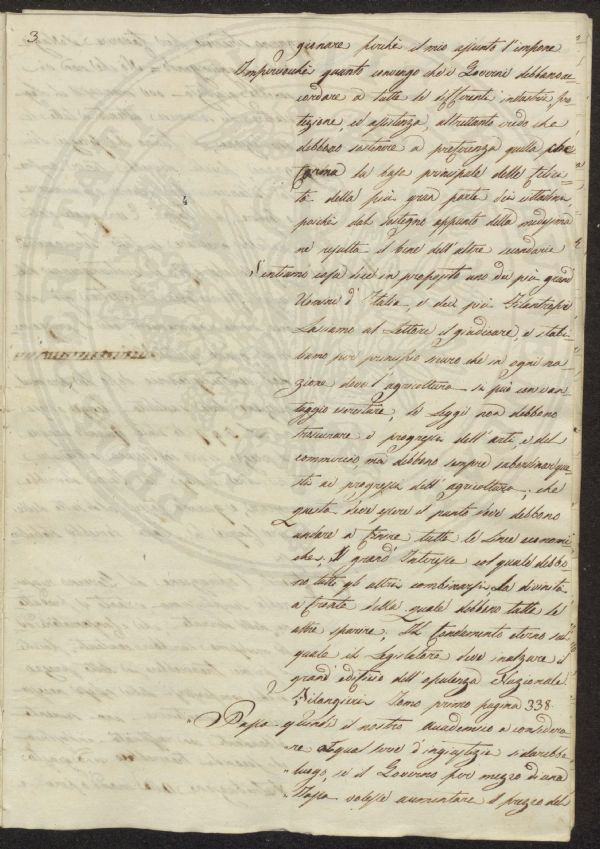 3.
gionare perchè il mio assunto l'impone
Imperciocchè quanto convengo che i Governi debbano ac-
cordare a tutte le differenti industrie pro-
tezione, ed assistenza, altrettanto credo che
debbono sostenere a preferenza quella che
forma la base principale delle felici-
tà della più gran parte dei cittadini
poichè dal sostegno appunto della medesima
ne risulta il bene dell'altre secondarie
Sentiamo cosa dice in proposito uno dei più grandi
Uomini d'Italia, e dei più Filantropi
Lasciamo al Lettore il giudicare, e stabi-
liamo per principio sicuro che in ogni na-
zione dove l'agricoltura si può con van-
taggio esercitare, le Leggi non debbono
trascurare i progressi dell'arti, e del
commercio, ma debbono sempre subordinare que-
sti ai progressi dell'agricoltura; che
questo deve essere il punto dove debbono
andare a finire tutte le linee economi-
che, Il grand'Interesse col quale debbo-
no tutti gli altri combinarsi, La divinità
a fronte della quale debbono tutte le
altre sparire, Il fondamento eterno sul
quale il Legislatore deve inalzare il
grand'edificio dell'opulenza Nazionale
Filangieri Tomo primo pagina 338.
" Passa quindi il nostro Accademico a considera-
" re a qual serie d'ingiustizie si darebbe
" luogo, se il Governo per mezzo di una
" Tassa volesse aumentare il prezzo del